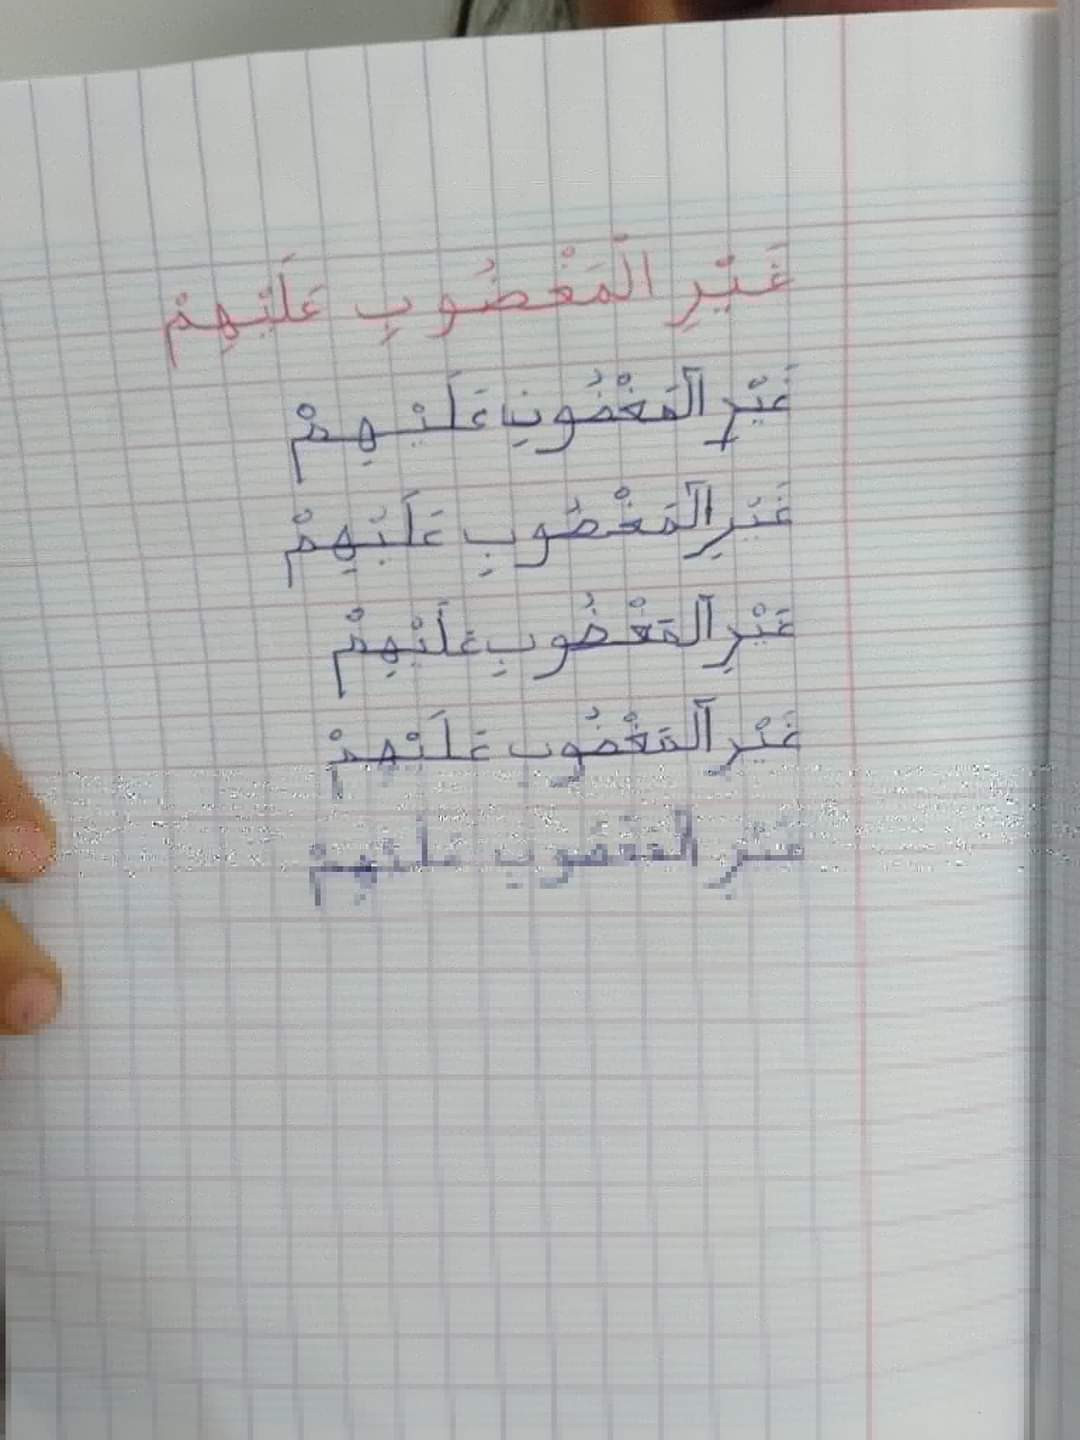 غَيْرِ الْمَغْضُوبِ عَلَيْهِمْ
غَيْرِ الْمَغْضُوبِ عَلَيْهِمْ
غَيْرِ الْمَغْضُوبِ عَلَيْهِمْ
غَيْرِ الْمَغْضُوبِ عَلَيْهِمْ
غَيْرِ الْمَغْضُوبِ عَلَيْهِمْ
غَيْرِ الْمَغْضُوبِ عَلَيْهِمْ